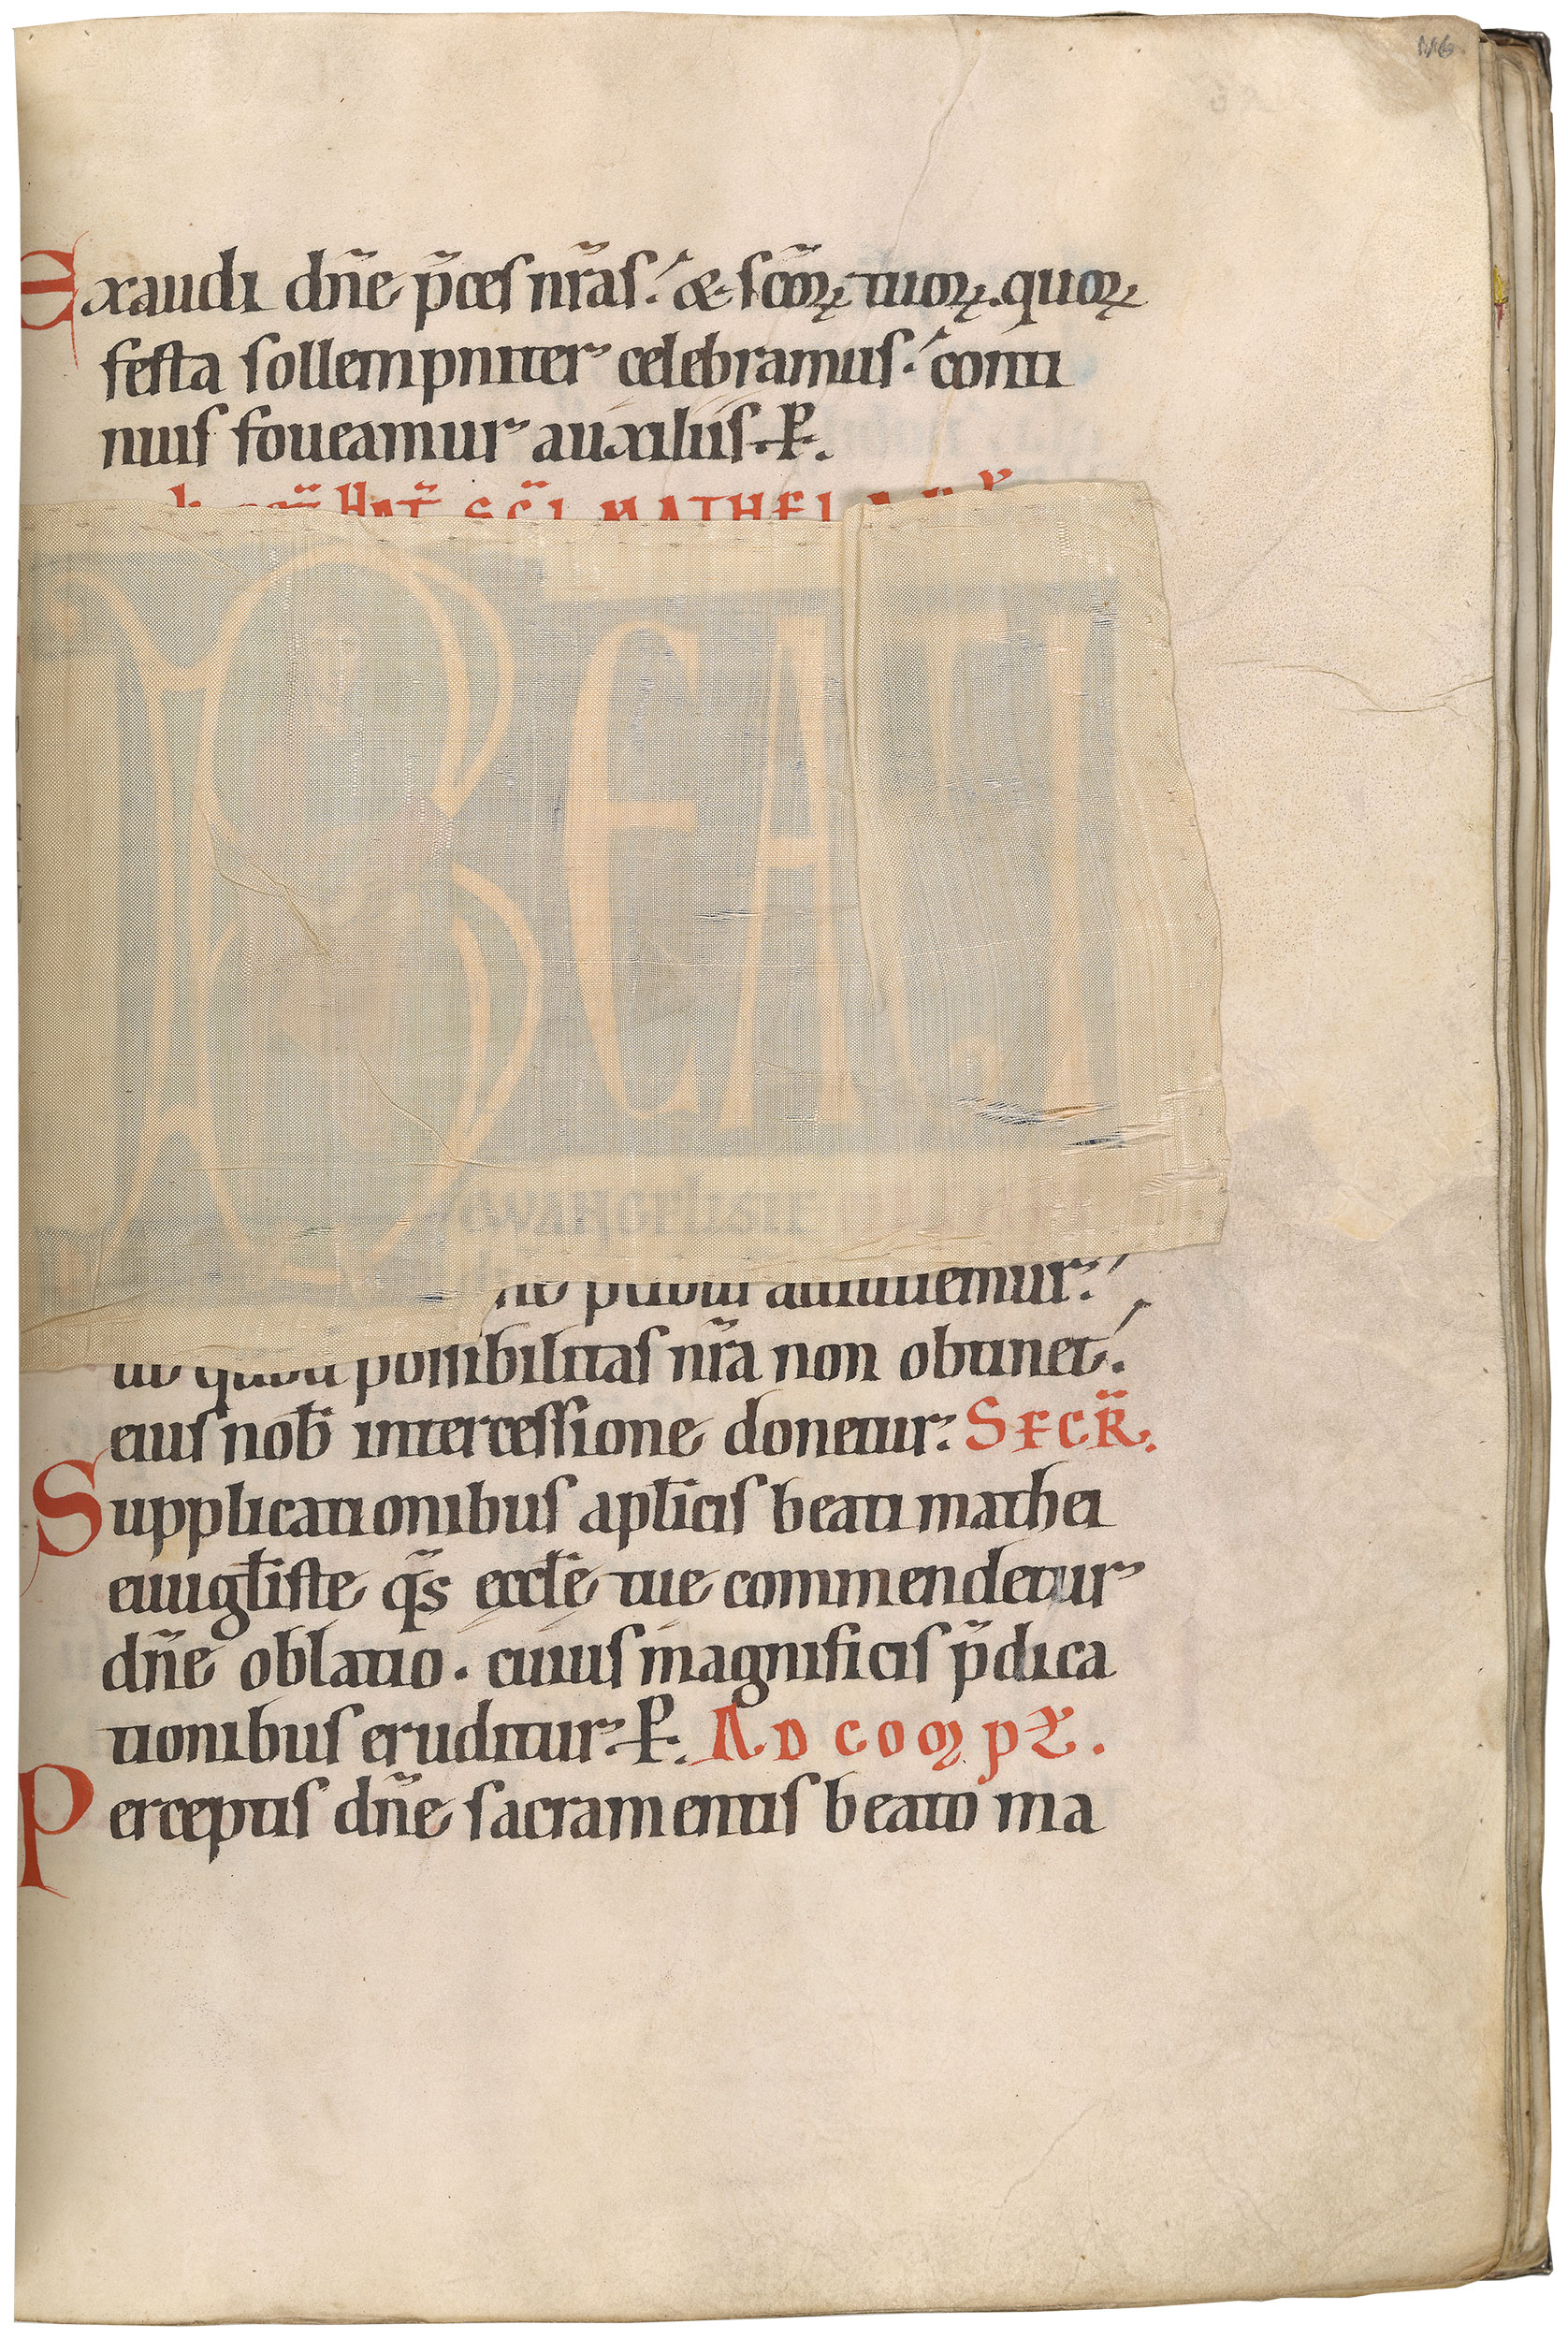 Exaudi dn̄e p̄ces nr̄as. & sc̄oꝝ tuoꝝ. quoꝝ
festa sollempniter celebramus. conti
nuis foueamur auxiliis. P̱.
SC̄I MATHEI
BEATI
EWANGELISTE
ne p̄cibus adiuuemur.
possibilitas nr̄a non obtinet.
eius nob̄ intercessione donetur. SECR̄.
Supplicationibus apl̄icis beati mathei
euuגl̄iste q̄s eccl̄e tue commendetur
dn̄e oblatio. cuius magnificis p̄dica
tionibus eruditur. P̱. AD COMPL̄.
Perceptis dn̄e sacramentis beato ma